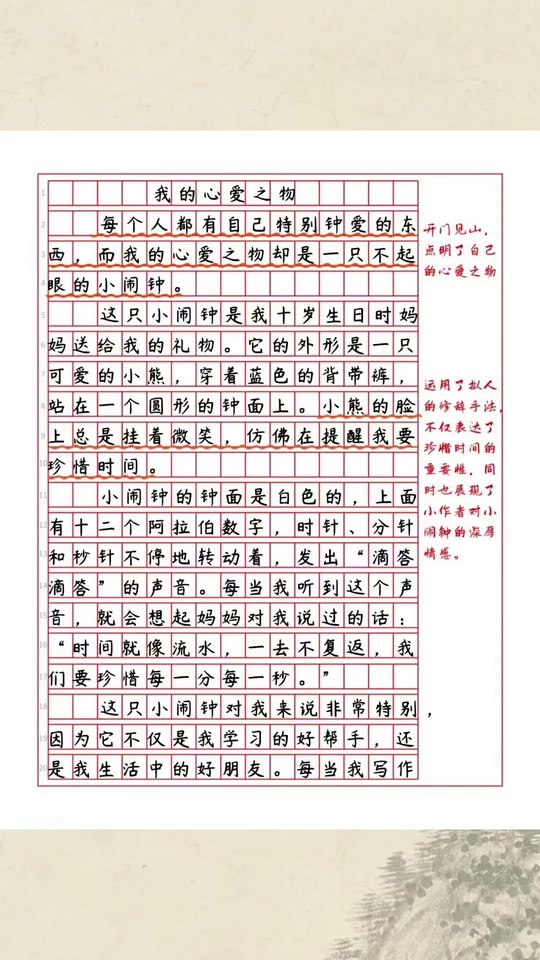 我的心爱之物
每个人都有自己特别钟爱的东
西，而我的心爱之物却是一只不起
眼的小闹钟。
这只小闹钟是我十岁生日时妈
妈送给我的礼物。它的外形是一只
可爱的小熊，穿着蓝色的背带裤，
站在一个圆形的钟面上。小熊的脸
上总是挂着微笑，仿佛在提醒我要
珍惜时间。
小闹钟的钟面是白色的，上面
有十二个阿拉伯数字，时针、分针
和秒针不停地转动着，发出“滴答
滴答”的声音。每当我听到这个声
音，就会想起妈妈对我说过的话：
“时间就像流水，一去不复返，我
们要珍惜每一分每一秒。”
这只小闹钟对我来说非常特别，
因为它不仅是我学习的好帮手，还
是我生活中的好朋友。每当我写作
开门见山，
点明了自己
的心爱之物
运用了拟人
的修辞手法，
不仅表达了
珍惜时间的
重要性，同
时也展现了
小作者对小
闹钟的深厚
情感。
1
2
3
4
5
6
7
8
9
10
11
12
13
14
15
16
17
18
19
20